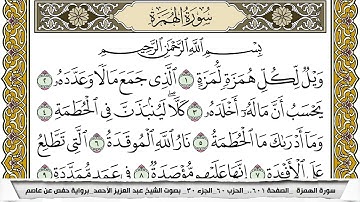 سُورَةُ الهُمَزَةِ
بِسْمِ اللَّهِ الرَّحْمَٰنِ الرَّحِيمِ
وَيْلٌ لِّكُلِّ هُمَزَةٍ لُّمَزَةٍ ١ الَّذِي جَمَعَ مَالًا وَعَدَّدَهُ ٢
يَحْسَبُ أَنَّ مَالَهُ أَخْلَدَهُ ٣ كَلَّا لَيُنبَذَنَّ فِي الْحُطَمَةِ ٤
وَمَا أَدْرَاكَ مَا الْحُطَمَةُ ٥ نَارُ اللَّهِ الْمُوقَدَةُ ٦ الَّتِي تَطَّلِعُ
عَلَى الْأَفْئِدَةِ ٧ إِنَّهَا عَلَيْهِم مُّؤْصَدَةٌ ٨ فِي عَمَدٍ مُّمَدَّدَةٍ ٩
سورة الهمزة _الصفحة ٦٠١_ الحزب ٦٠_الجزء ٣٠_ بصوت الشيخ عبد العزيز الأحمد_برواية حفص عن عاصم